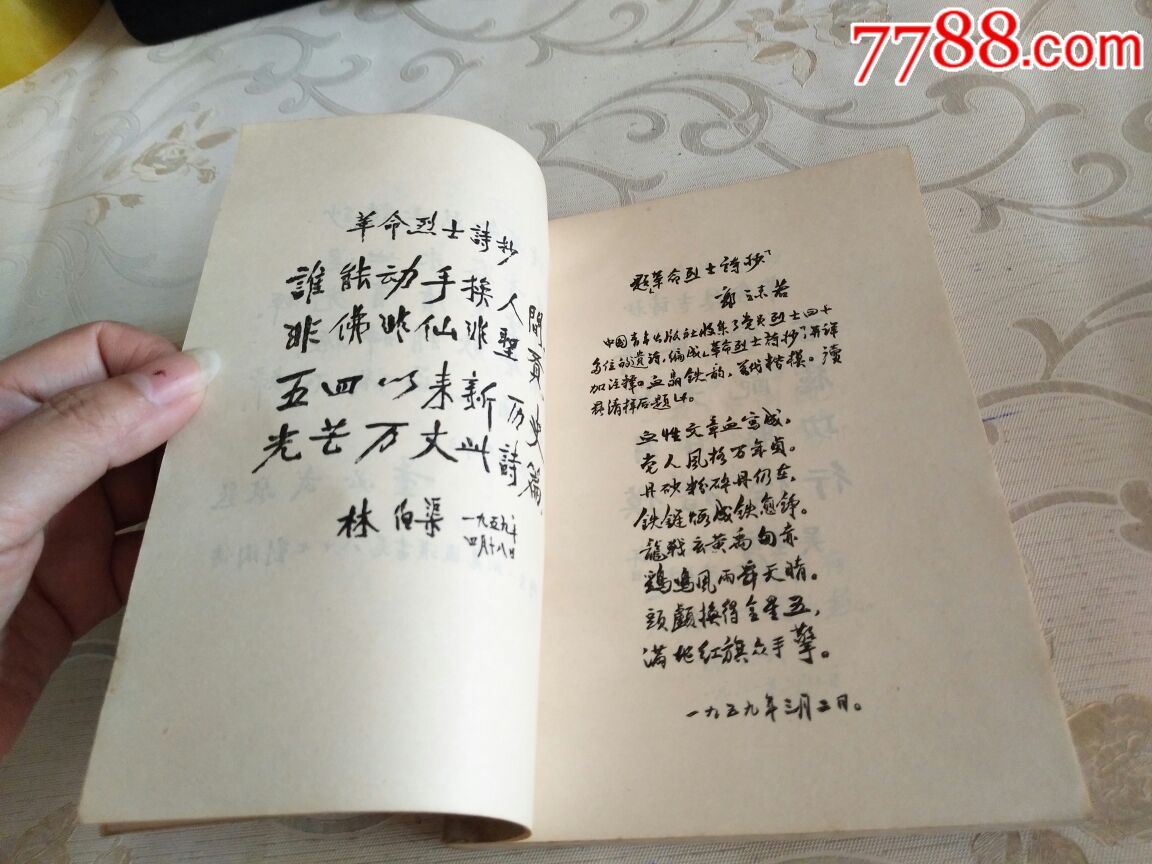 7788.com
革命烈士詩抄
誰能动手挨人間
非佛非仙非聖賢
五四以来新历史
光芒万丈此詩篇
林伯渠
一九五九年
四月十八日
題「革命烈士詩抄」
郭沫若
中国青年出版社收集了党员烈士四十
多位的遗詩,编成「革命烈士詩抄」,并详
加注释。血晶铁韵,万代楷模。读
其清样后题此。
血性文章血写成,
党人风格万年贞。
丹砂粉碎丹仍在,
铁链煅成铁愈铮。
龍戰玄黄禹甸赤,
鷄鳴風雨舜天晴。
頭顱換得金星五,
满地红旗众手擎。
一九五九年三月三日。